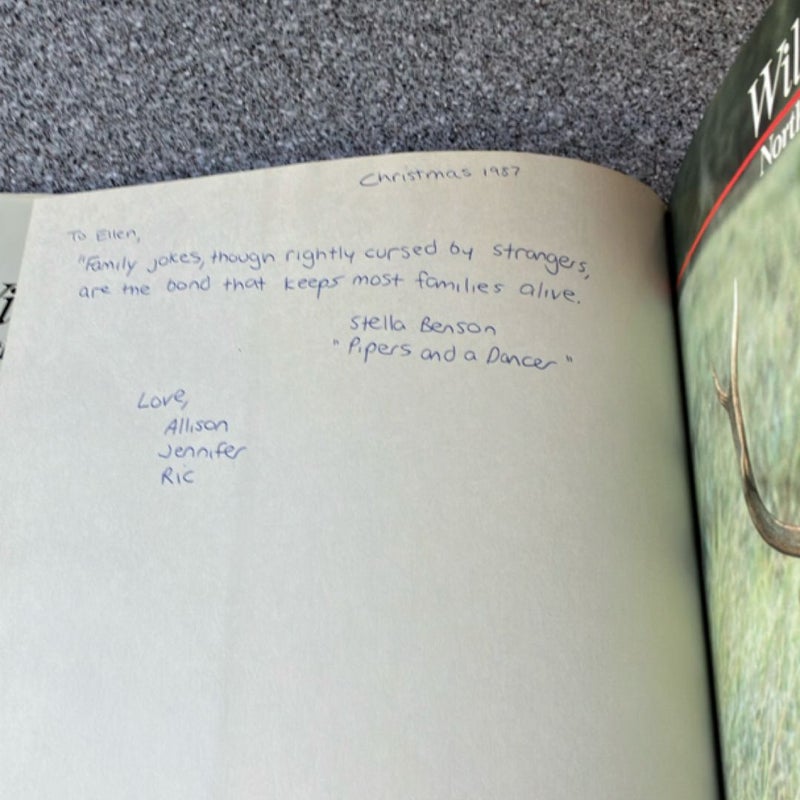 Christmas 1987
To Ellen,
"Family jokes, though rightly cursed by strangers,
are the bond that keeps most families alive.
Stella Benson
"Pipers and a Dancer"
Love,
Allison
Jennifer
Ric